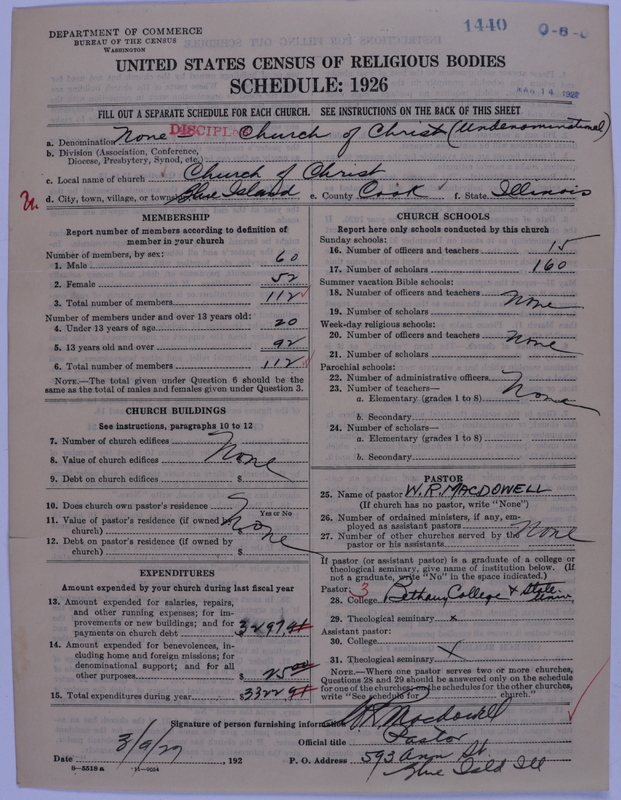 1440
DEPARTMENT OF COMMERCE
BUREAU OF THE CENSUS
WASHINGTON
UNITED STATES CENSUS OF RELIGIOUS BODIES
SCHEDULE: 1926
MAR 14 1927
FILL OUT A SEPARATE SCHEDULE FOR EACH CHURCH. SEE INSTRUCTIONS ON THE BACK OF THIS SHEET
a. Denomination None - Church of Christ (Undenominational)
b. Division (Association, Conference,
Diocese, Presbytery, Synod, etc.)
c. Local name of church Church of Christ
d. City, town, village, or township Blue Island e. County Cook f. State Illinois
MEMBERSHIP
Report number of members according to definition of
member in your church
Number of members, by sex:
1. Male 60
2. Female 52
3. Total number of members 112
Number of members under and over 13 years old:
4. Under 13 years of age 20
5. 13 years old and over 92
6. Total number of members 112
NOTE.—The total given under Question 6 should be the
same as the total of males and females given under Question 3.
CHURCH BUILDINGS
See instructions, paragraphs 10 to 12
7. Number of church edifices
8. Value of church edifices None
9. Debt on church edifices $
10. Does church own pastor's residence
Yes or No
11. Value of pastor's residence (if owned by
church) None
12. Debt on pastor's residence (if owned by
church) $
EXPENDITURES
Amount expended by your church during last fiscal year
13. Amount expended for salaries, repairs,
and other running expenses; for im-
provements or new buildings; and for
payments on church debt $3297
14. Amount expended for benevolences, in-
cluding home and foreign missions; for
denominational support; and for all
other purposes $25.00
15. Total expenditures during year $3322
CHURCH SCHOOLS
Report here only schools conducted by this church
Sunday schools:
16. Number of officers and teachers 15
17. Number of scholars 160
Summer vacation Bible schools:
18. Number of officers and teachers None
19. Number of scholars
Week-day religious schools:
20. Number of officers and teachers None
21. Number of scholars
Parochial schools:
22. Number of administrative officers
23. Number of teachers—
a. Elementary (grades 1 to 8) None
b. Secondary
24. Number of scholars—
a. Elementary (grades 1 to 8)
b. Secondary
PASTOR
25. Name of pastor W. R. MACDOWELL
(If church has no pastor, write "None")
26. Number of ordained ministers, if any, em-
ployed as assistant pastors
27. Number of other churches served by the
pastor or his assistants None
If pastor (or assistant pastor) is a graduate of a college or
theological seminary, give name of institution below. (If
not a graduate, write "No" in the space indicated.)
Pastor: 3
28. College Bethany College & State Univ
29. Theological seminary x
Assistant pastor:
30. College
31. Theological seminary x
NOTE.—Where one pastor serves two or more churches,
Questions 28 and 29 should be answered only on the schedule
for one of the churches; on the schedules for the other churches,
write "See schedule for church."
Signature of person furnishing information W R Macdowell
Official title Pastor
Date 3/9/27, 192 P. O. Address 593 Ann St.
Blue Isld Ill
8—5518 a 11—9014